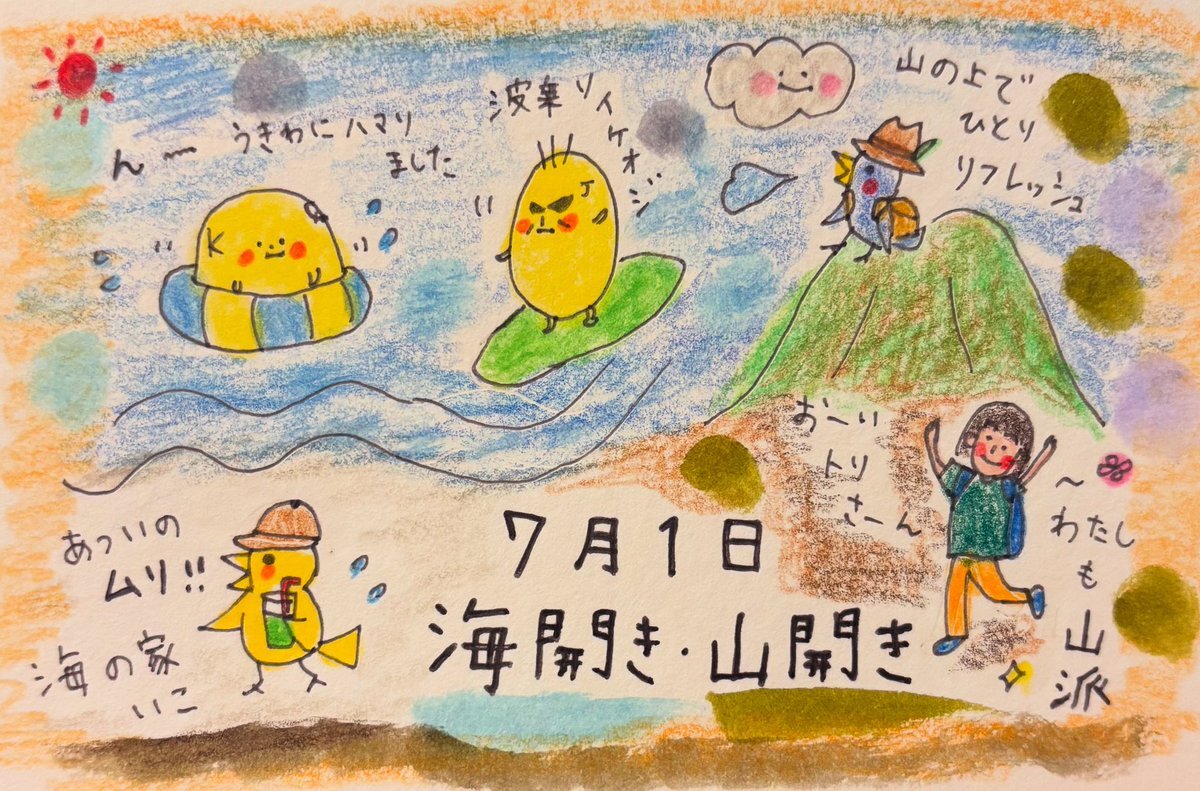 ん〜
うきわにハマり
ました
K
波乗りイケオジ
J
山の上で
ひとり
リフレッシュ
お〜い
トリ
さーん
〜わたし
も
山
派
あついの
ムリ!!
海の家
いこ
7月1日
海開き・山開き